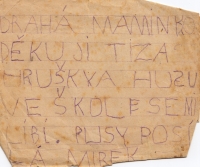 DRAHÁ MAMINK
DĚKUJI TI ZA
RUŠKVA HUSU
VE ŠKOLE SEMI
LÍBÍ. PUSY POS
LÁ MIREK